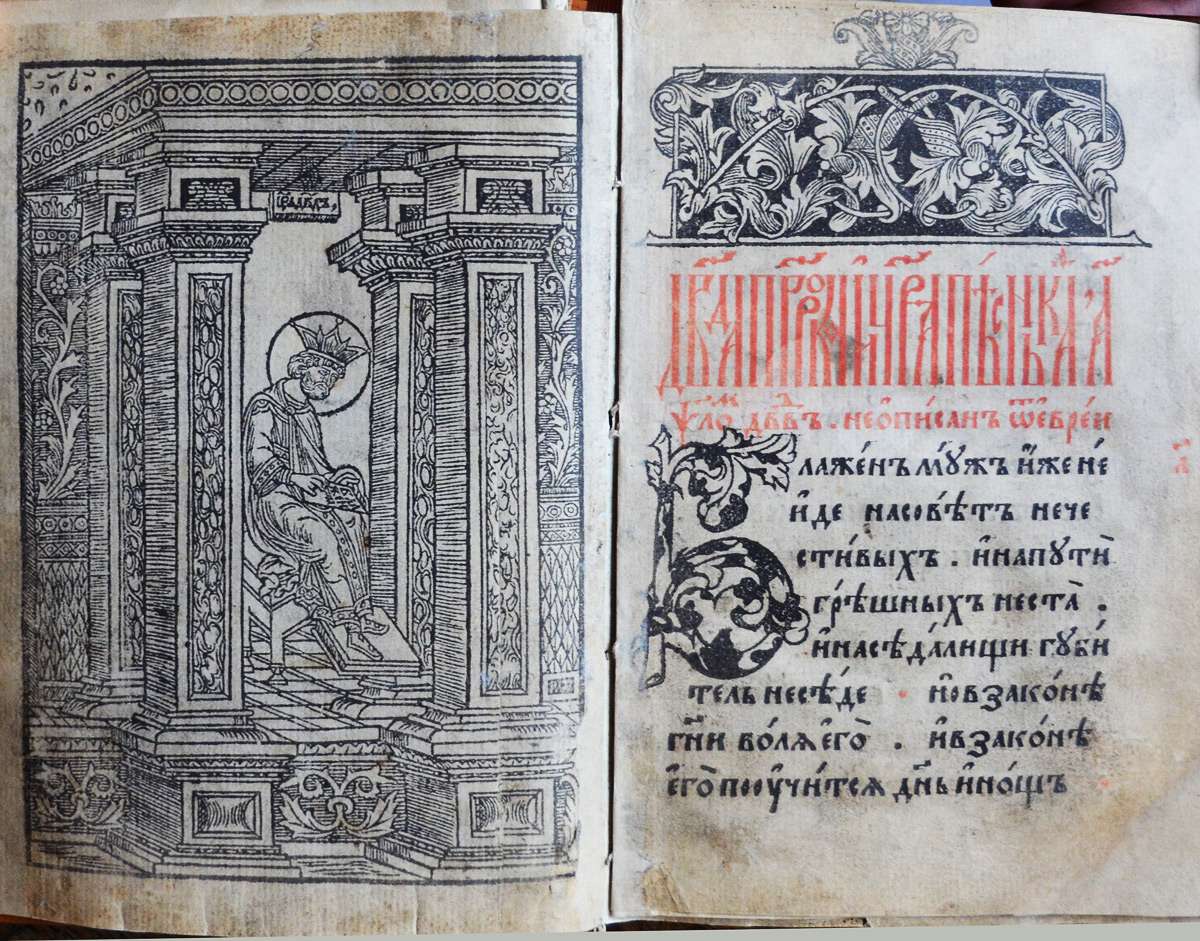 ѱло́мъ дв҃двъ. не ѻ҆писан ѿ еврей
Блаже́нъ мꙋжъ и҆же не́
и҆де на совѣ́тъ нече
сти́выхъ . и҆ на пути҆
грѣ́шныхъ не ста̀ .
и҆ на сѣда́лищи гꙋби́
тель не сѣ́де . но̀ в зако́нѣ
гн҃и во́лѧ є҆го̀ . и҆ в зако́нѣ
є҆го̀ поꙋчи́тсѧ дн҃ь и҆ но́щъ